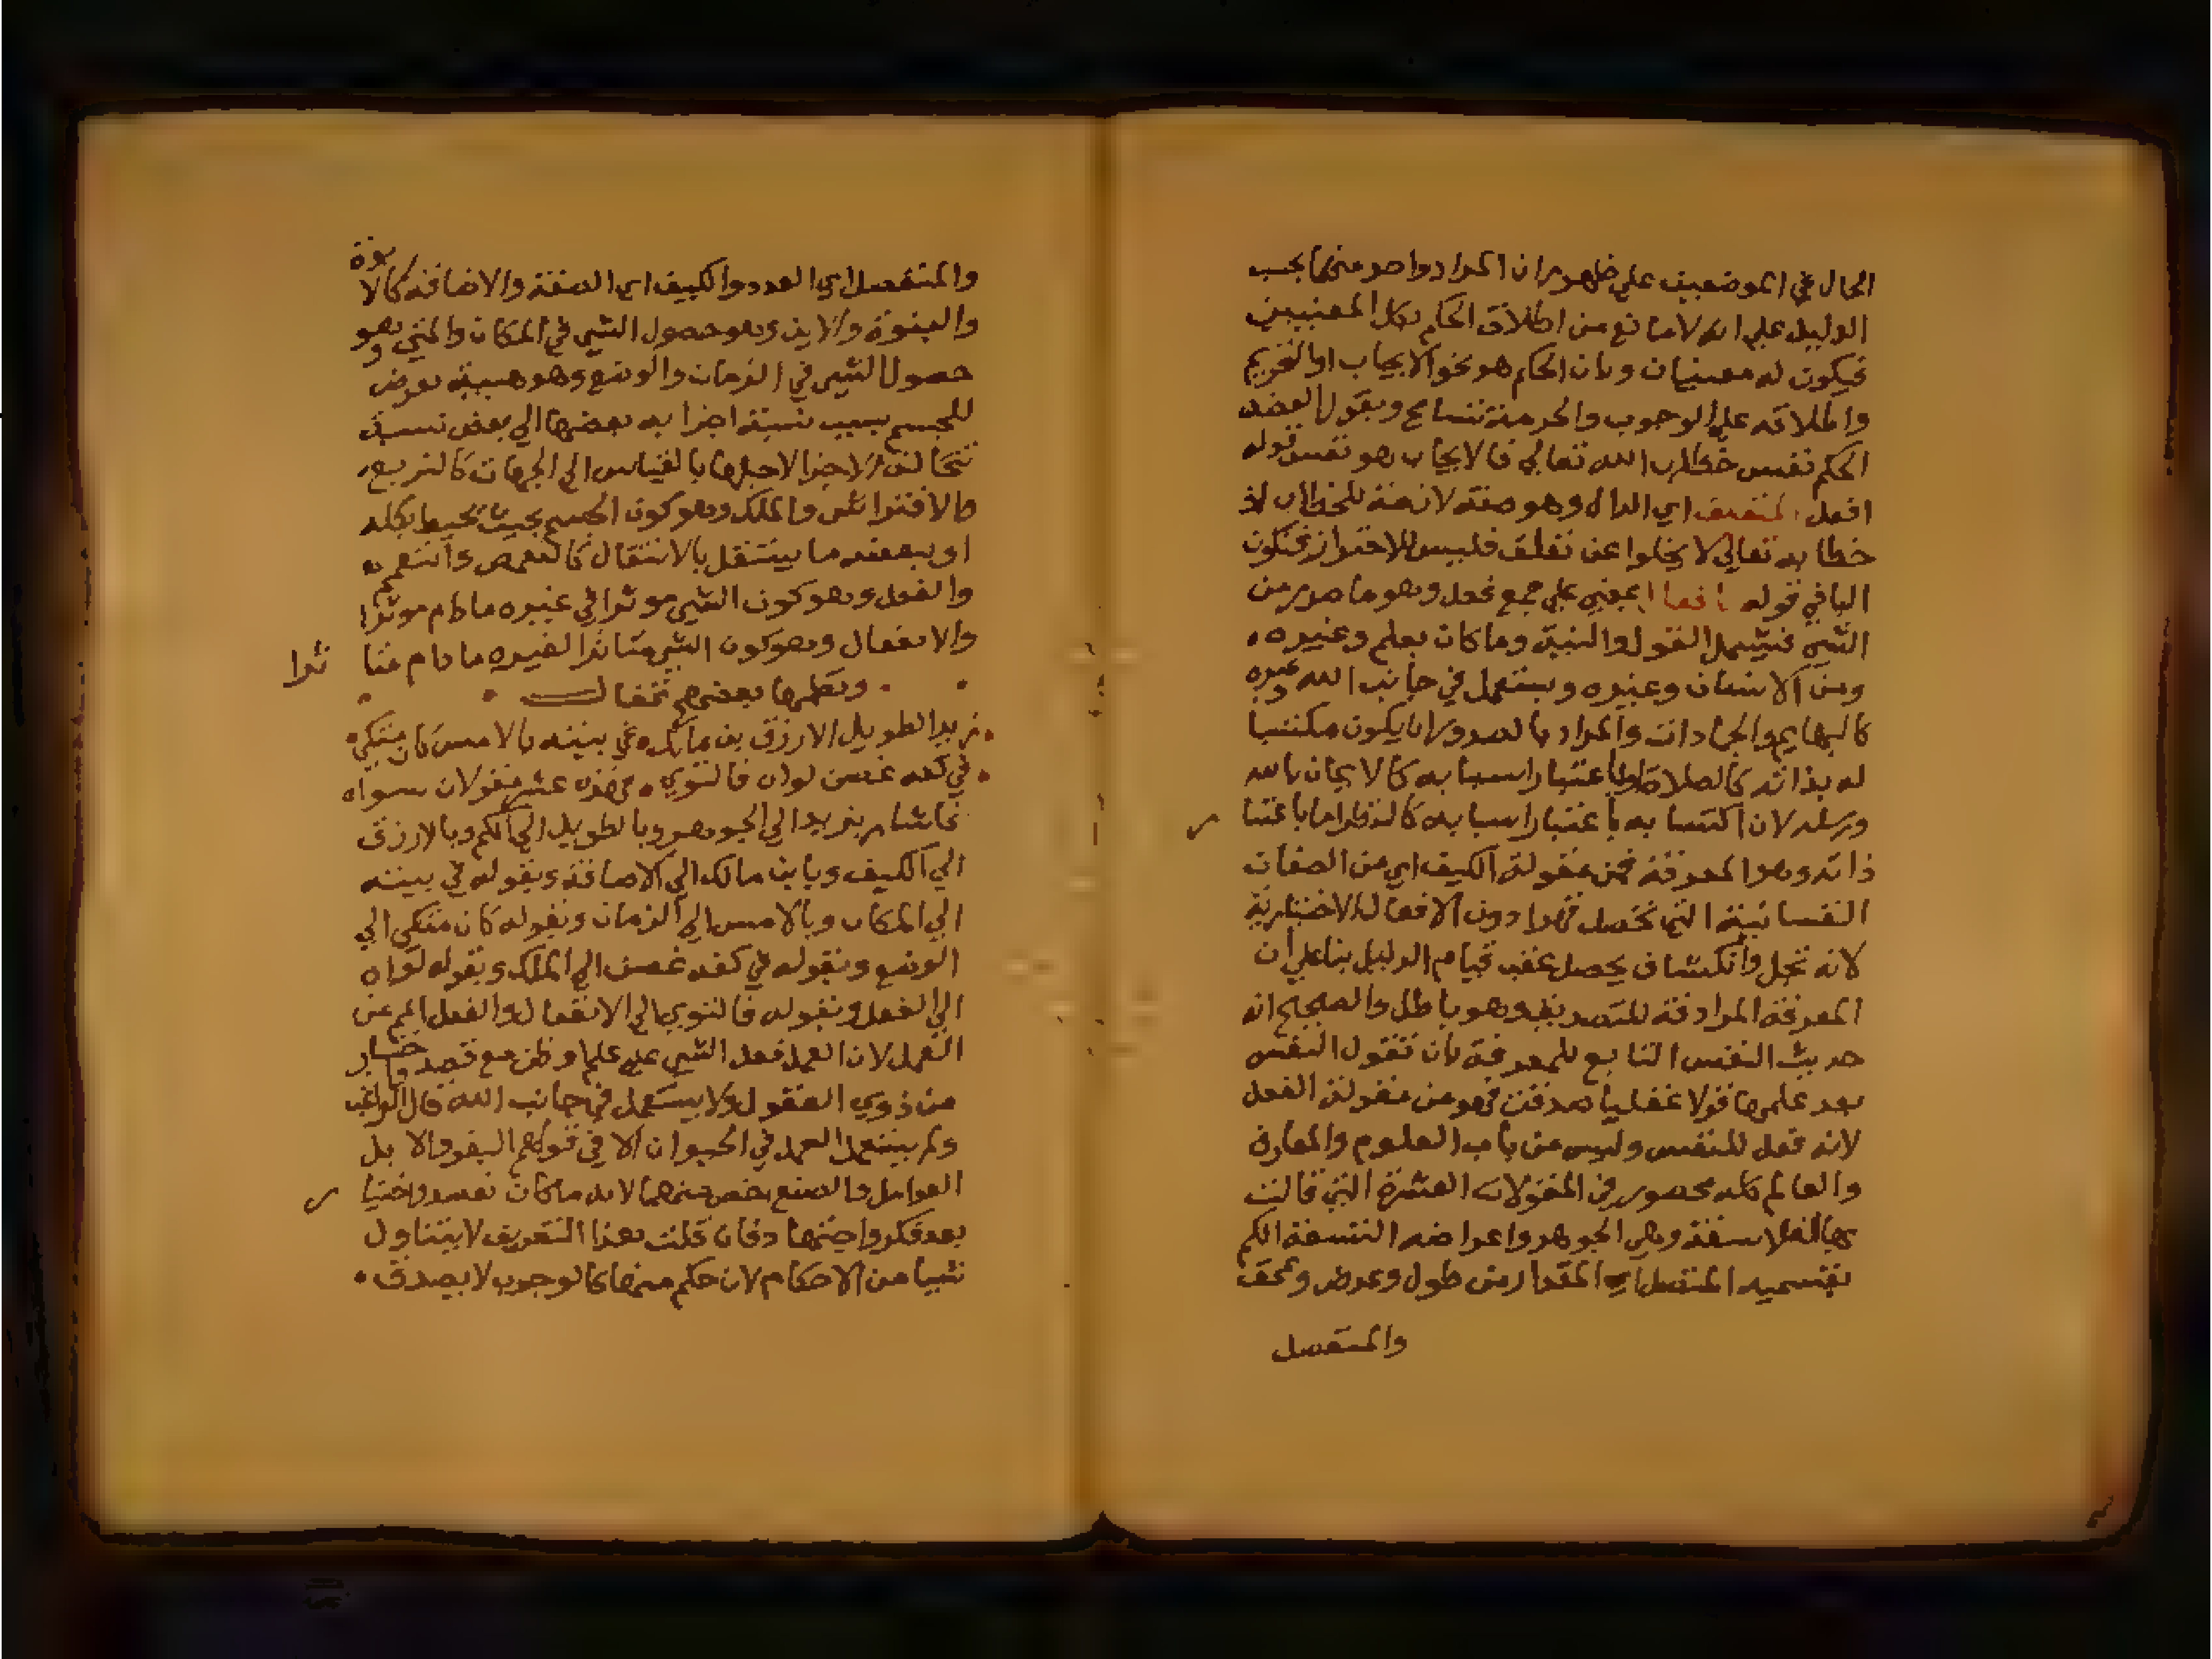 الحال في الموضعين علي ظهور ان المراد واحد منهما بحسب
الدليل علي انه لا مانع من اطلاق الحكم بكل المعنيين
فيكون له معنيان وبان الحكم هو نحو الايجاب او التحريم
واطلاقه علي الوجوب والحرمة تسامح وبقول العضد
الحكم نفس خطاب الله تعالي فالايجاب هو نفس قوله
افعل المتعلق اي الدال وهو صفة لازمة للخطاب اذ
خطابه تعالي لا يخلوا عن تعلق فليس للاحتراز فتكون
البا في قوله بافعال بمعني علي جمع فعل وهو ما صدر من
الشي فيشمل القول والنية وما كان بعلم وغيره
ومن الانسان وغيره ويستعمل في جانب الله وغيره
كالبهايم والجمادات والمراد بالصدور ان يكون مكتسبا
له بذاته كالصلاة او باعتبار اسبابه كالايمان بالله
ورسله لان اكتسابه باعتبار اسبابه كالنظر اما باعتبا ر
ذاته وهو المعرفة فمن مقولة الكيف اي من الصفات
النفسانية التي تحصل قهرا دون الافعال الاختيارية
لانه تجل وانكشاف يحصل عقب قيام الدليل بنا علي ان
المعرفة المرادفة للتصديق وهو باطل والصحيح انه
حديث النفس التابع للمعرفة بان تقول النفس
بعد علمها قولا عقليا صدقت فهو من مقولة الفعل
لانه فعل للنفس وليس من باب العلوم والمعارف
والعالم كله محصور في المقولات العشرة التي قالت
بها الفلاسفة وهي الجوهر واعراضه التسعة الكم
بقسميه المتصل اي المقدار من طول وعرض وعمق
والمنفصل
والمنفصل اي العدد والكيف اي الصفة والاضافة كالابوة
والبنوة والاين وهو حصول الشي في المكان والمتي وهو
حصول الشي في الزمان والوضع وهو هيية تعرض
للجسم بسبب نسبة اجزايه بعضها الي بعض نسبة
تتخالف الاجزا لاجلها بالقياس الي الجهات كالتربع
والافتراش والملك وهو كون الجسم بحيث يحيط بكله
او ببعضه ما ينتقل بالانتقال كالتقمص والتعمم
والفعل وهو كون الشي موثرا في غيره ما دام موثرا
والانفعال وهو كون الشي متاثرا لغيره ما دام متا ثرا
ونظمها بعضهم فقال
زيد الطويل الازرق بن مالك في بيته بالامس كان متكي
في كفه غصن لواه فالتوي فهذه عشر مقولات سواه
فاشار بزيد الي الجوهر وبالطويل الي الكم وبالازرق
الي الكيف وبابن مالك الي الاضافة وبقوله في بيته
الي المكان وبالامس الي الزمان وبقوله كان متكي الي
الوضع وبقوله في كفه غصن الي الملك وبقوله لواه
الي الفعل وبقوله فالتوي الي الانفعال والفعل اعم من
العمل لان العمل فعل الشي عن علم او ظن مع قصد واختيار
من ذوي العقول ولا يستعمل في جانب الله قال الراغب
ولم يستعمل العمل في الحيوان الا في قولهم البقر والابل
العوامل والصنع اخص منهما لانه ما كان بقصد واختيا ر
بعد فكر واجتهاد فان قلت هذا التعريف لا يتناول
شيا من الاحكام لان حكم منها كالوجوب لا يصدق